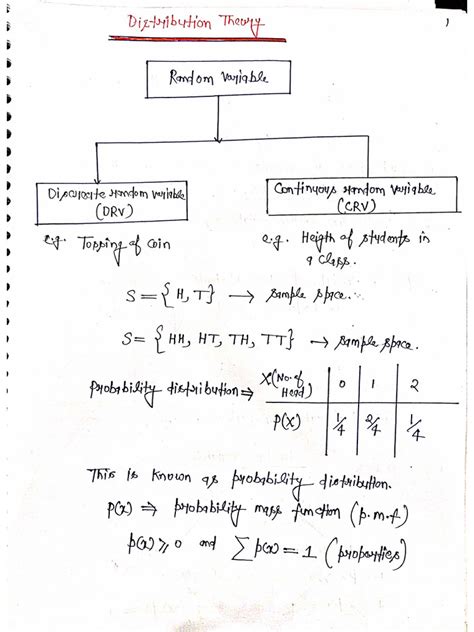 Distribution Theory
1
Random Variable
Discurete random variable
(DRV)
Continuous random variable
(CRV)
e.g. Topping of coin
e.g. Heigth of students in
a class.
S = {H, T} → sample space.
S = {HH, HT, TH, TT} → sample space.
probability distribution ⇒
X(No. of Head) | 0 | 1 | 2
P(X) | 1/4 | 2/4 | 1/4
This is known as probability distribution.
p(x) ⇒ probability mass function (p.m.f)
p(x) ≥ 0 and ∑ p(x) = 1 (properties)